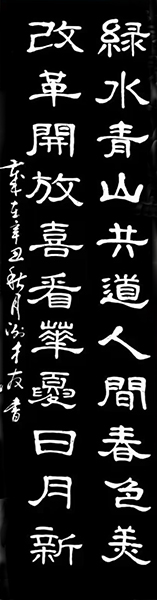 綠水青山共道人間春色美
改革開放喜看華夏日月新
歲在辛丑秋月才友書